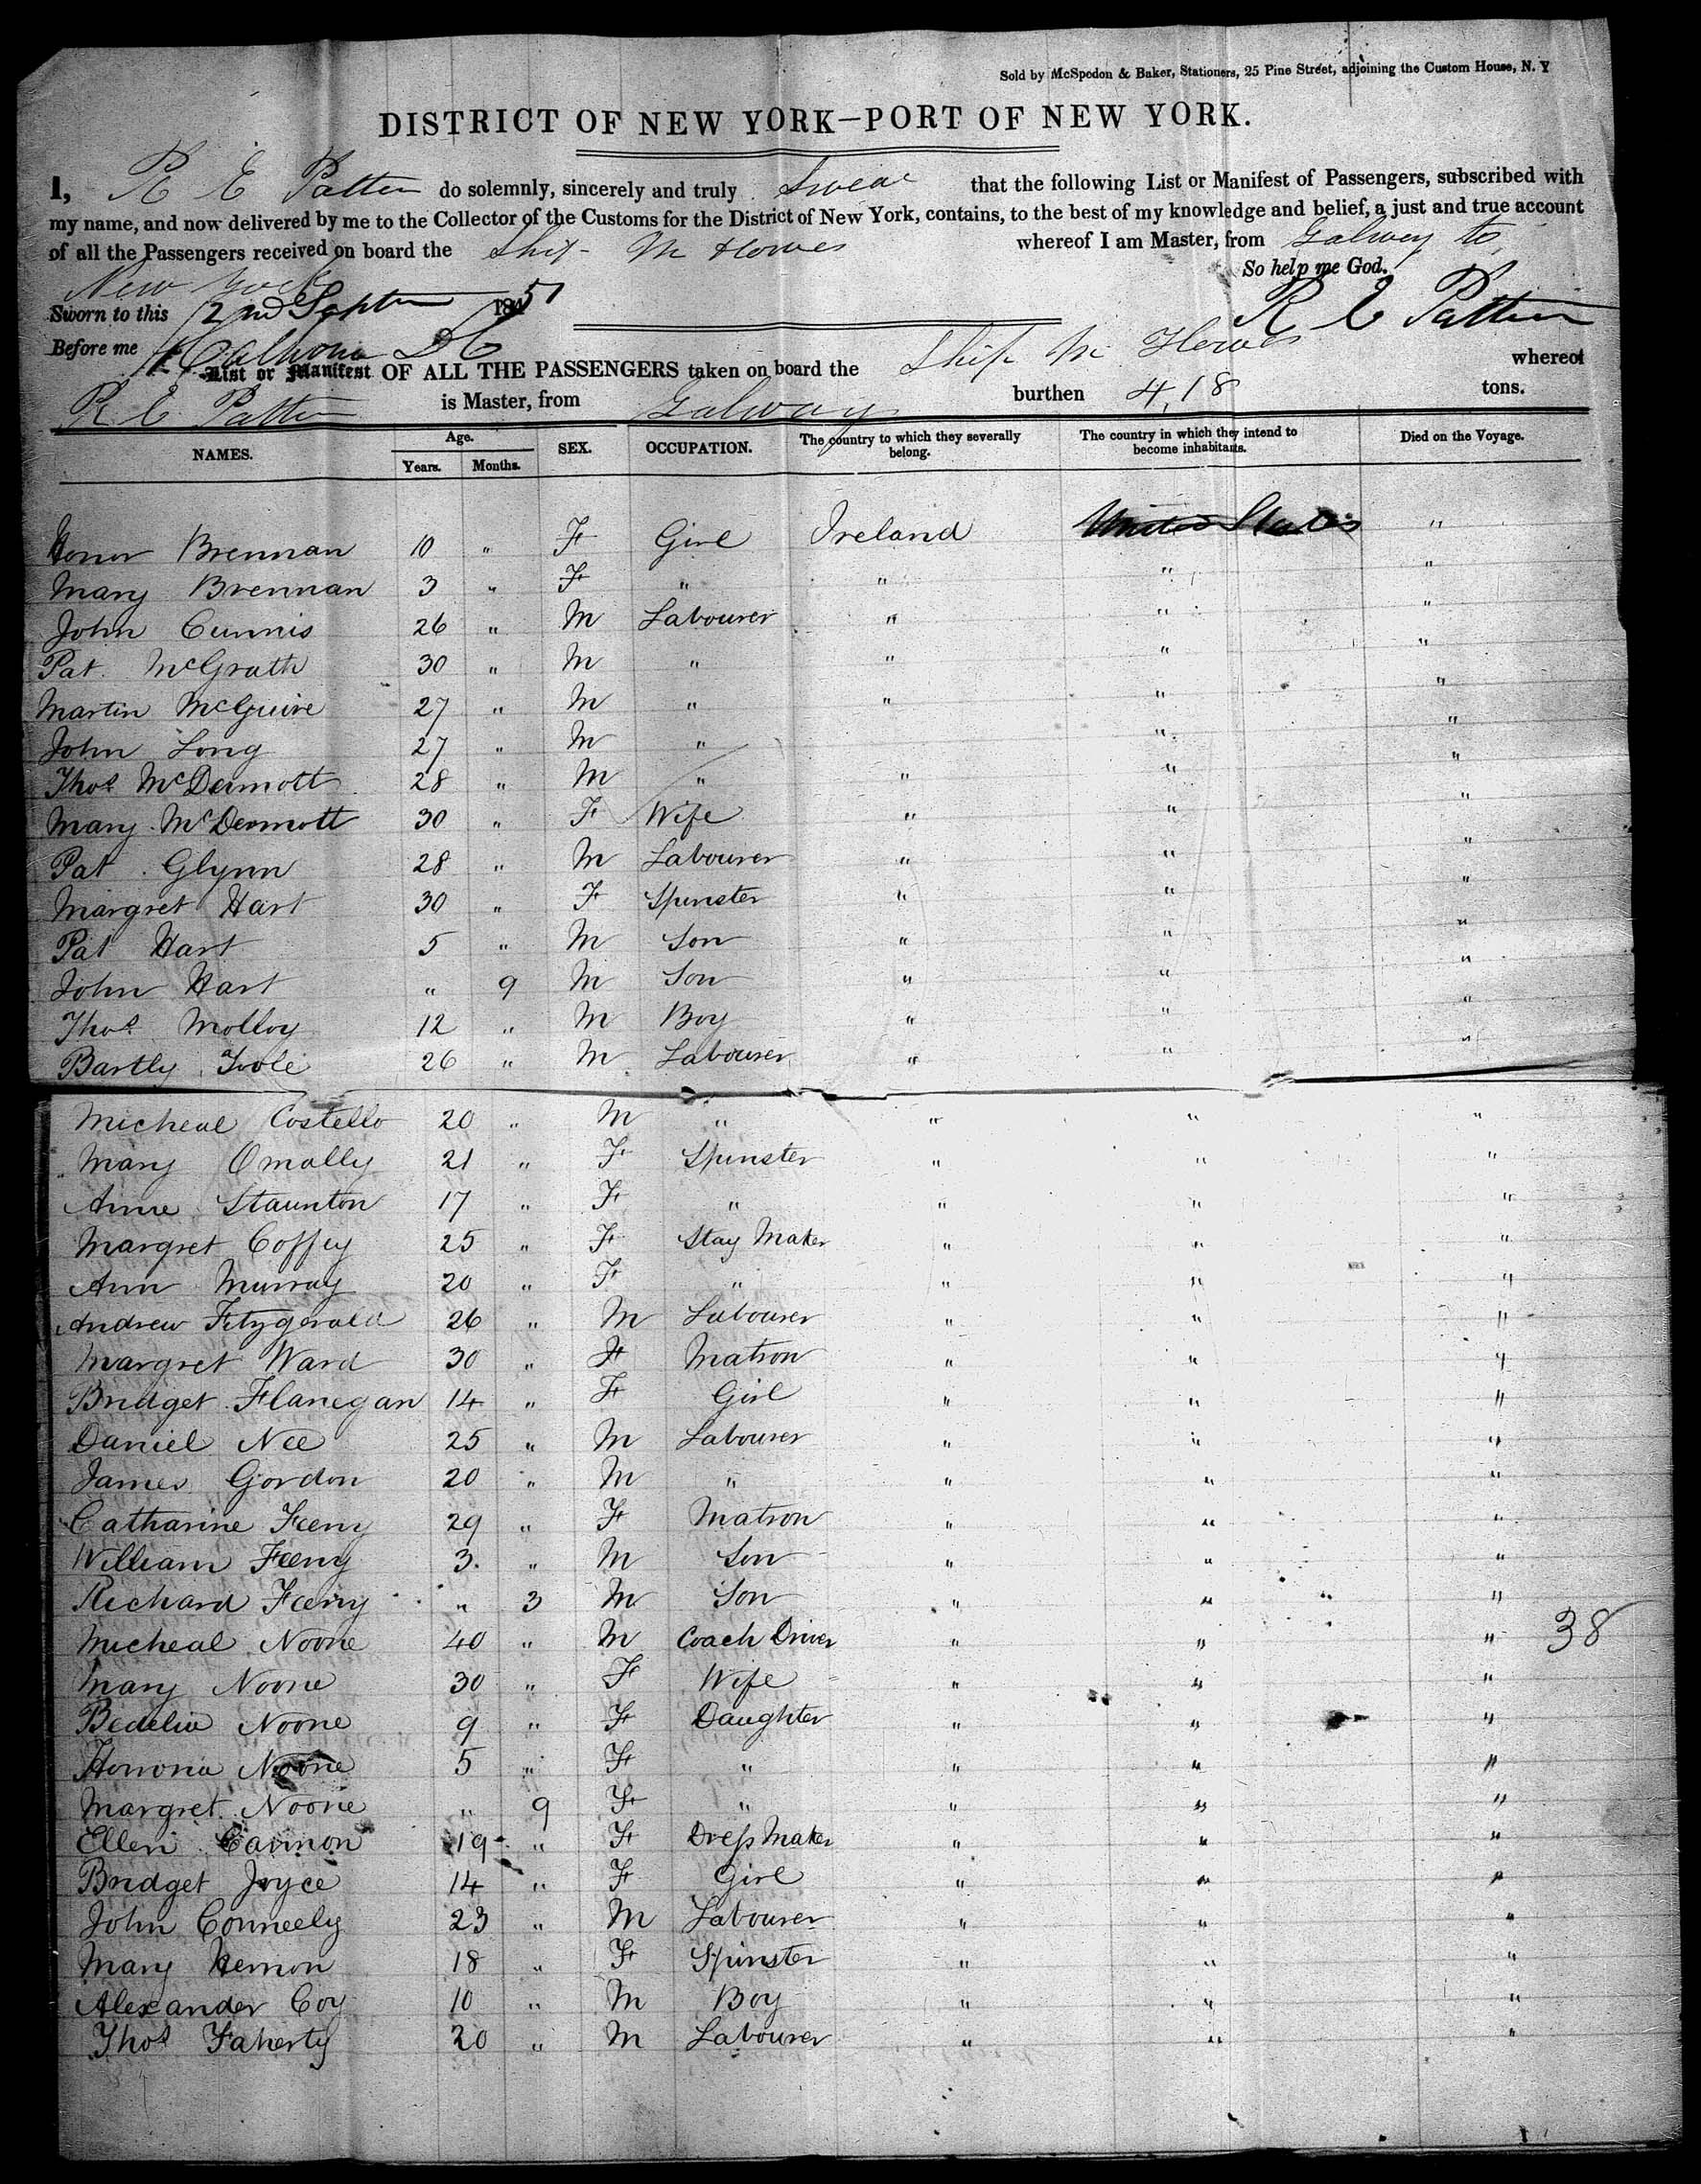 Sold by McSpedon & Baker, Stationers, 25 Pine Street, adjoining the Custom House, N. Y
DISTRICT OF NEW YORK—PORT OF NEW YORK.
I, R E Patten do solemnly, sincerely and truly Swear that the following List or Manifest of Passengers, subscribed with
my name, and now delivered by me to the Collector of the Customs for the District of New York, contains, to the best of my knowledge and belief, a just and true account
of all the Passengers received on board the Ship M Howes whereof I am Master, from Galway to
New York So help me God.
Sworn to this 2nd Septr 1851 R E Patten
Before me Calhoun DC
List or Manifest OF ALL THE PASSENGERS taken on board the Ship M Howes whereof
R E Patten is Master, from Galway burthen 418 tons.
NAMES. Age. Years. Months. SEX. OCCUPATION. The country to which they severally belong. The country in which they intend to become inhabitants. Died on the Voyage.
Honor Brennan 10 " F Girl Ireland United States "
Mary Brennan 3 " F " " " "
John Cunnis 26 " M Labourer " " "
Pat. McGrath 30 " M " " " "
Martin McGuire 27 " M " " " "
John Long 27 " M " " "
Thos McDermott 28 " M " " " "
Mary McDermott 30 " F Wife " " "
Pat Glynn 28 " M Labourer " " "
Margret Hart 30 " F Spinster " " "
Pat Hart 5 " M Son " " "
John Hart " 9 M Son " " "
Thos Molloy 12 " M Boy " " "
Bartly Toole 26 " M Labourer " " "
Micheal Costello 20 " M " " " "
Mary Omally 21 " F Spinster " " "
Anne Staunton 17 " F " " " "
Margret Coffey 25 " F Stay Maker " " "
Ann Murray 20 " F " " " "
Andrew Fitzgerald 26 " M Labourer " " "
Margret Ward 30 " F Matron " " "
Bridget Flanegan 14 " F Girl " " "
Daniel Nee 25 " M Labourer " " "
James Gordon 20 " M " " " "
Catharine Feeny 29 " F Matron " " "
William Feeny 3 " M Son " " "
Richard Feeny " 3 M Son " " "
Micheal Noone 40 " M Coach Driver " " " 38
Mary Noone 30 " F Wife " " "
Bedelia Noone 9 " F Daughter " " "
Honoria Noone 5 " F " " " "
Margret Noone " 9 F " " " "
Ellen Cannon 19 " F Dress Maker " " "
Bridget Joyce 14 " F Girl " " "
John Conneely 23 " M Labourer " " "
Mary Hernon 18 " F Spinster " " "
Alexander Coy 10 " M Boy " " "
Thos Faherty 20 " M Labourer " " "